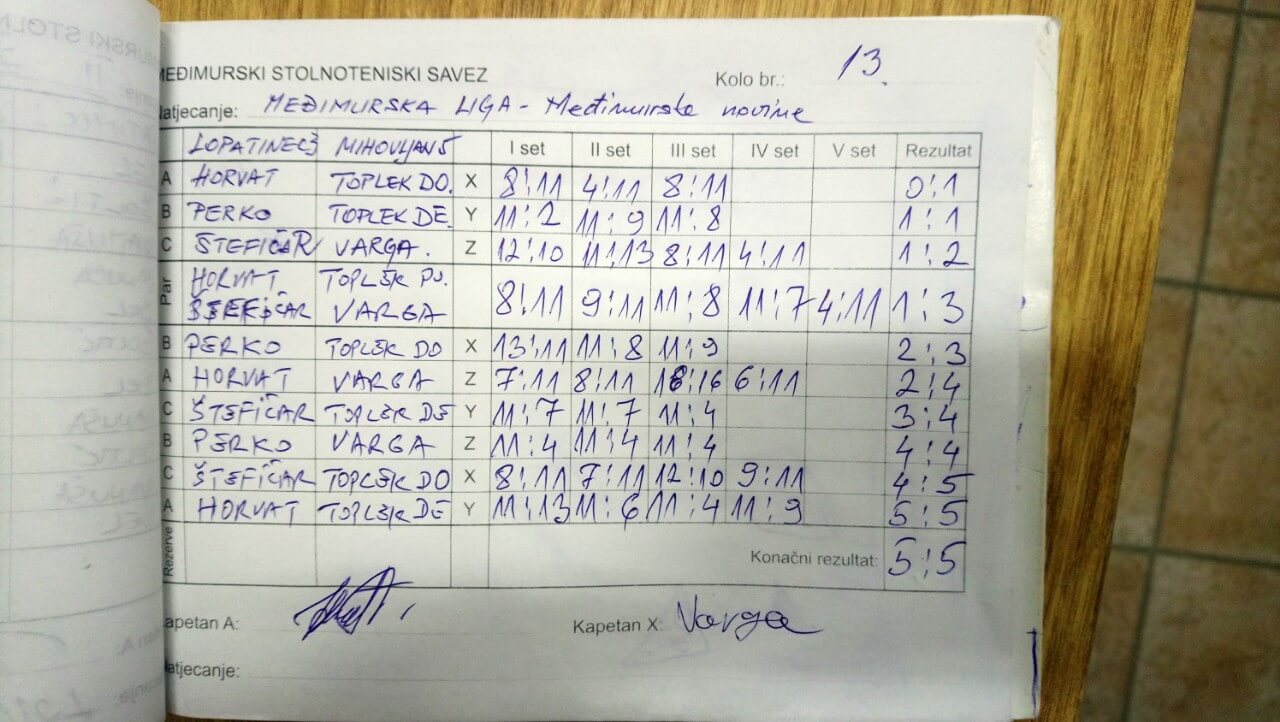 MEĐIMURSKI STOLNOTENISKI SAVEZ
Kolo br.: 13.
Natjecanje: MEĐIMURSKA LIGA - Međimurske novine
LOPATINEC 3 MIHOVLJAN 5 I set II set III set IV set V set Rezultat
A HORVAT TOPLEK DO. X 8:11 4:11 8:11 0:1
B PERKO TOPLEK DE. Y 11:2 11:9 11:8 1:1
C ŠTEFIČAR VARGA. Z 12:10 11:13 8:11 4:11 1:2
Par HORVAT TOPLEK
ŠTEFIČAR VARGA 8:11 9:11 11:8 11:7 4:11 1:3
B PERKO TOPLEK DO X 13:11 11:8 11:9 2:3
A HORVAT VARGA Z 7:11 8:11 18:16 6:11 2:4
C ŠTEFIČAR TOPLEK DE Y 11:7 11:7 11:4 3:4
B PERKO VARGA Z 11:4 11:4 11:4 4:4
C ŠTEFIČAR TOPLEK DO X 8:11 7:11 12:10 9:11 4:5
A HORVAT TOPLEK DE Y 11:13 11:6 11:4 11:9 5:5
Rezerve Konačni rezultat: 5:5
Kapetan A: Kapetan X: Varga
Natjecanje: